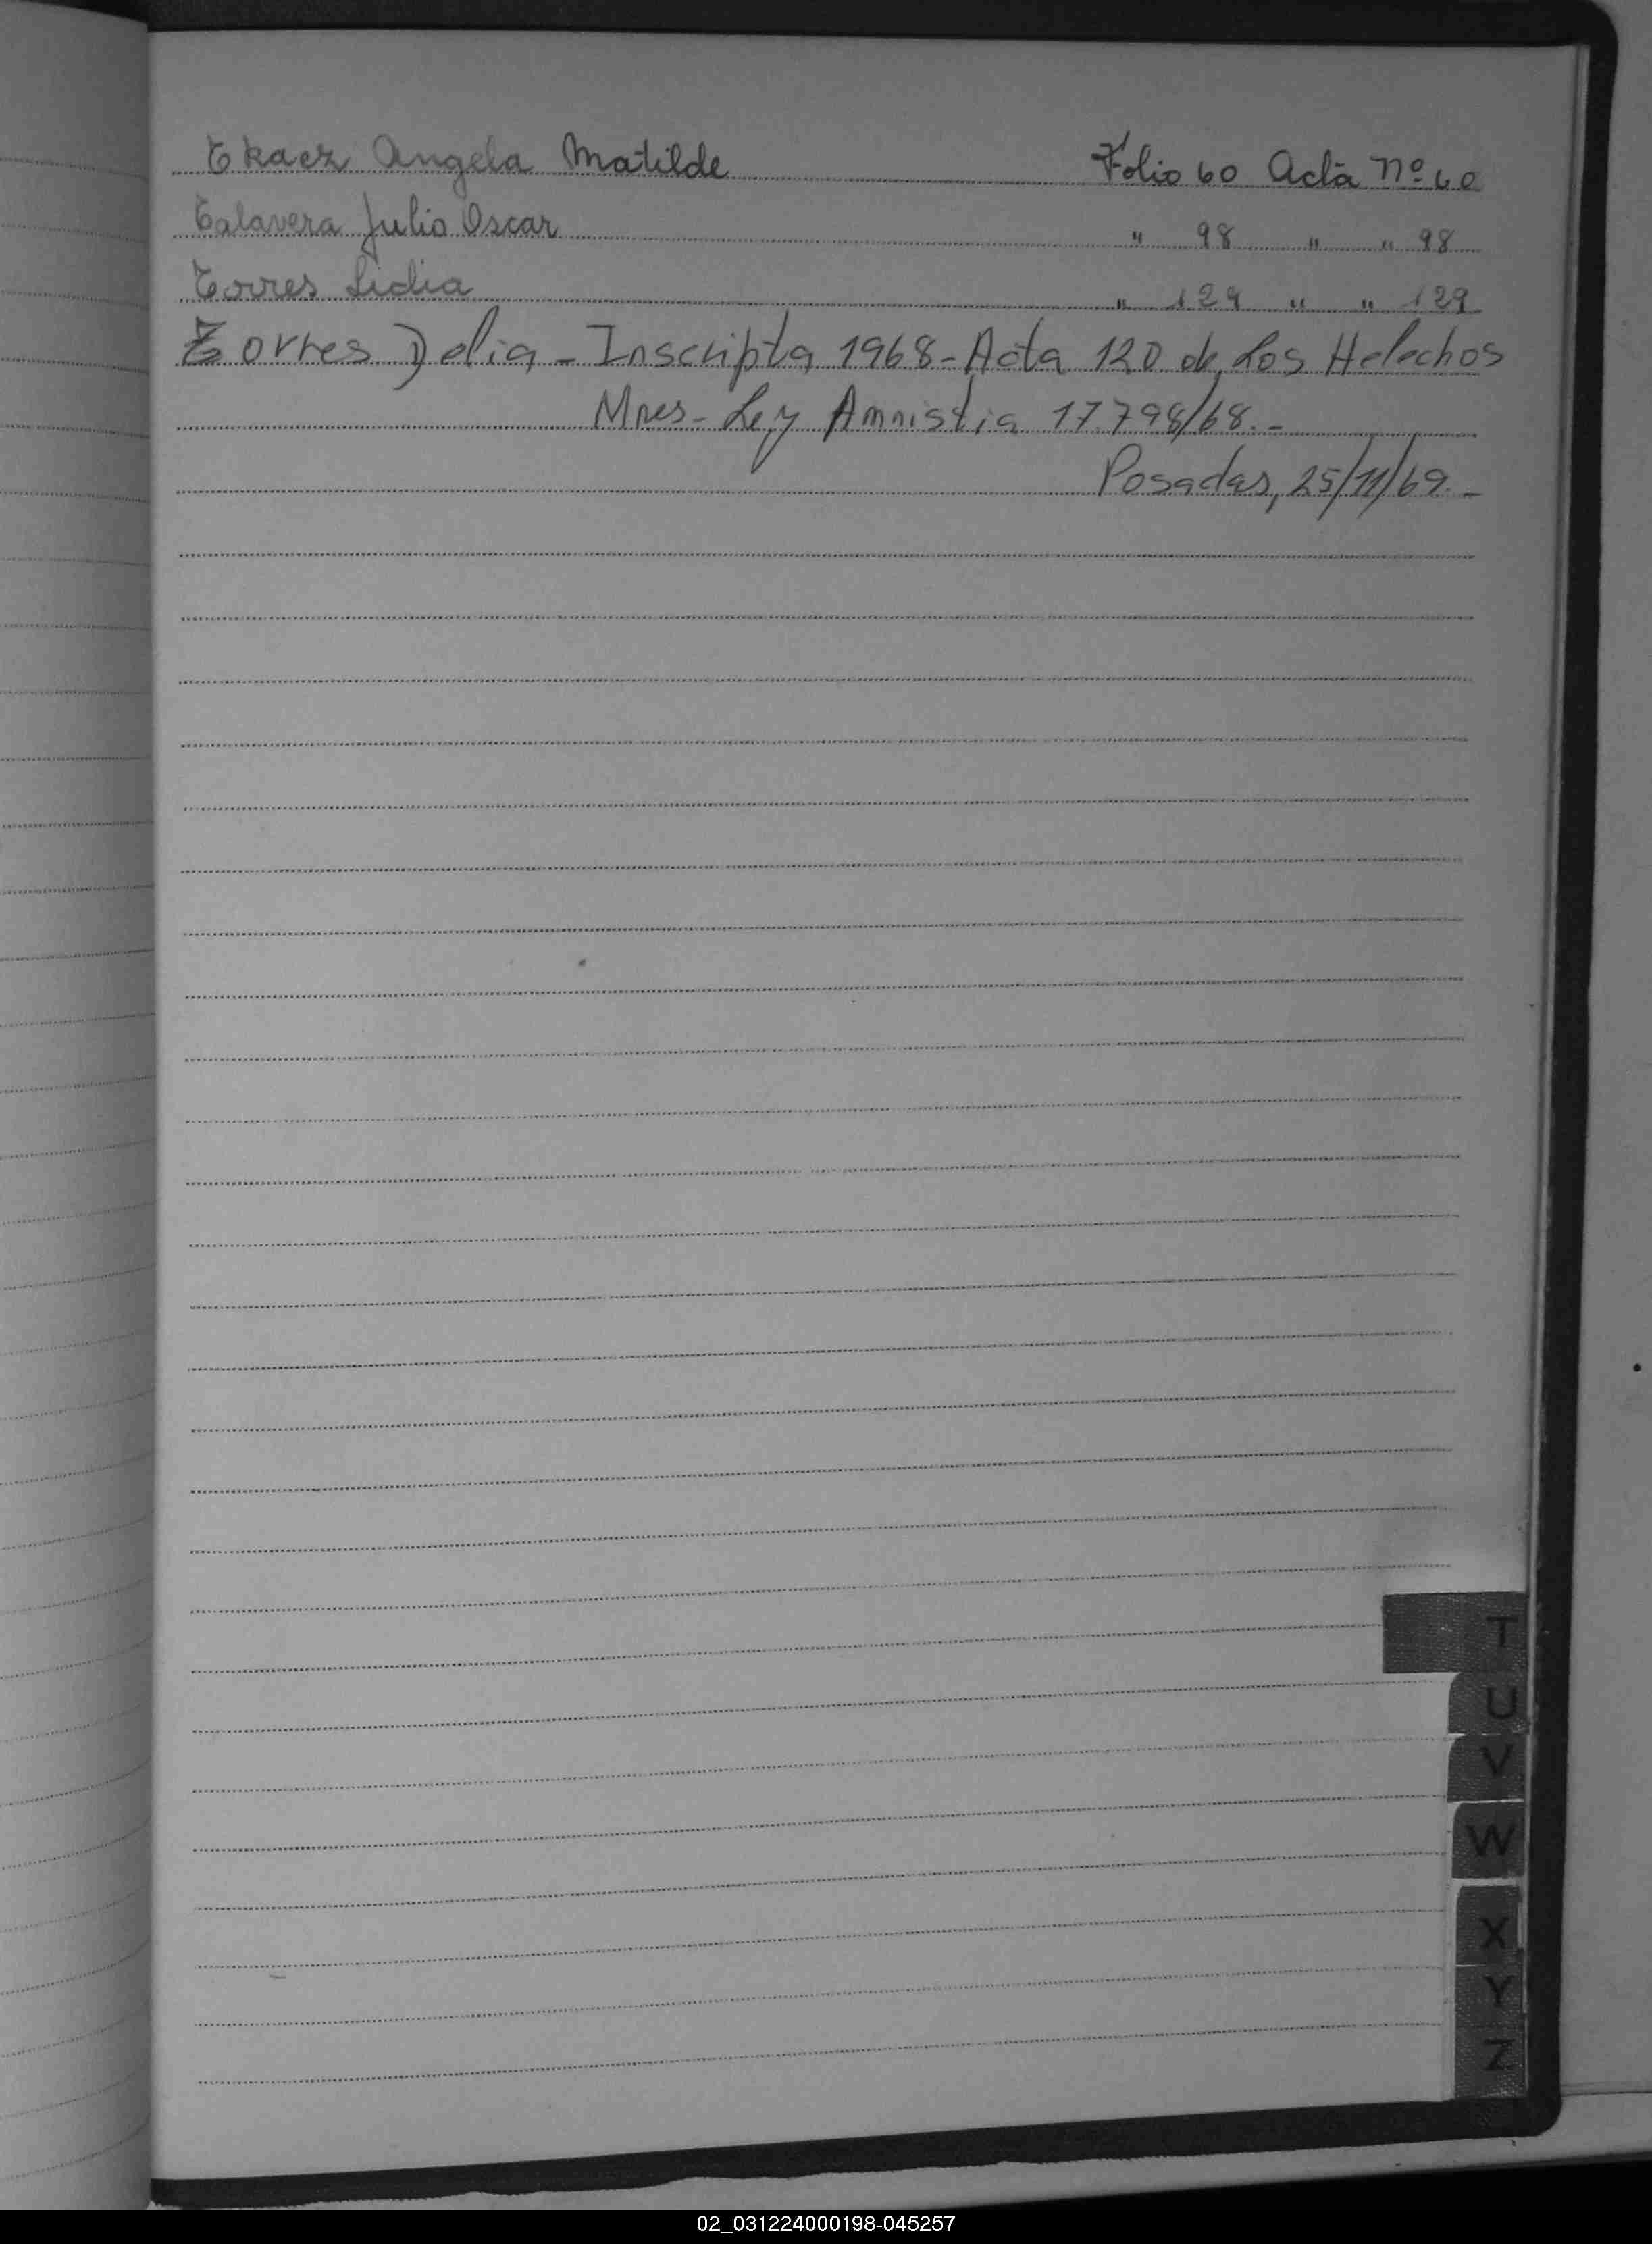 Tkacz Angela Matilde Folio 60 Acta Nº 60
Talavera Julio Oscar " 98 " " 98
Torres Lidia " 129 " " 129
Torres Delia - Inscripta 1968 - Acta 120 de Los Helechos
Mnes - Ley Amnistia 17.798/68. -
Posadas, 25/11/69. -
T
U
V
W
X
Y
Z
02_031224000198-045257